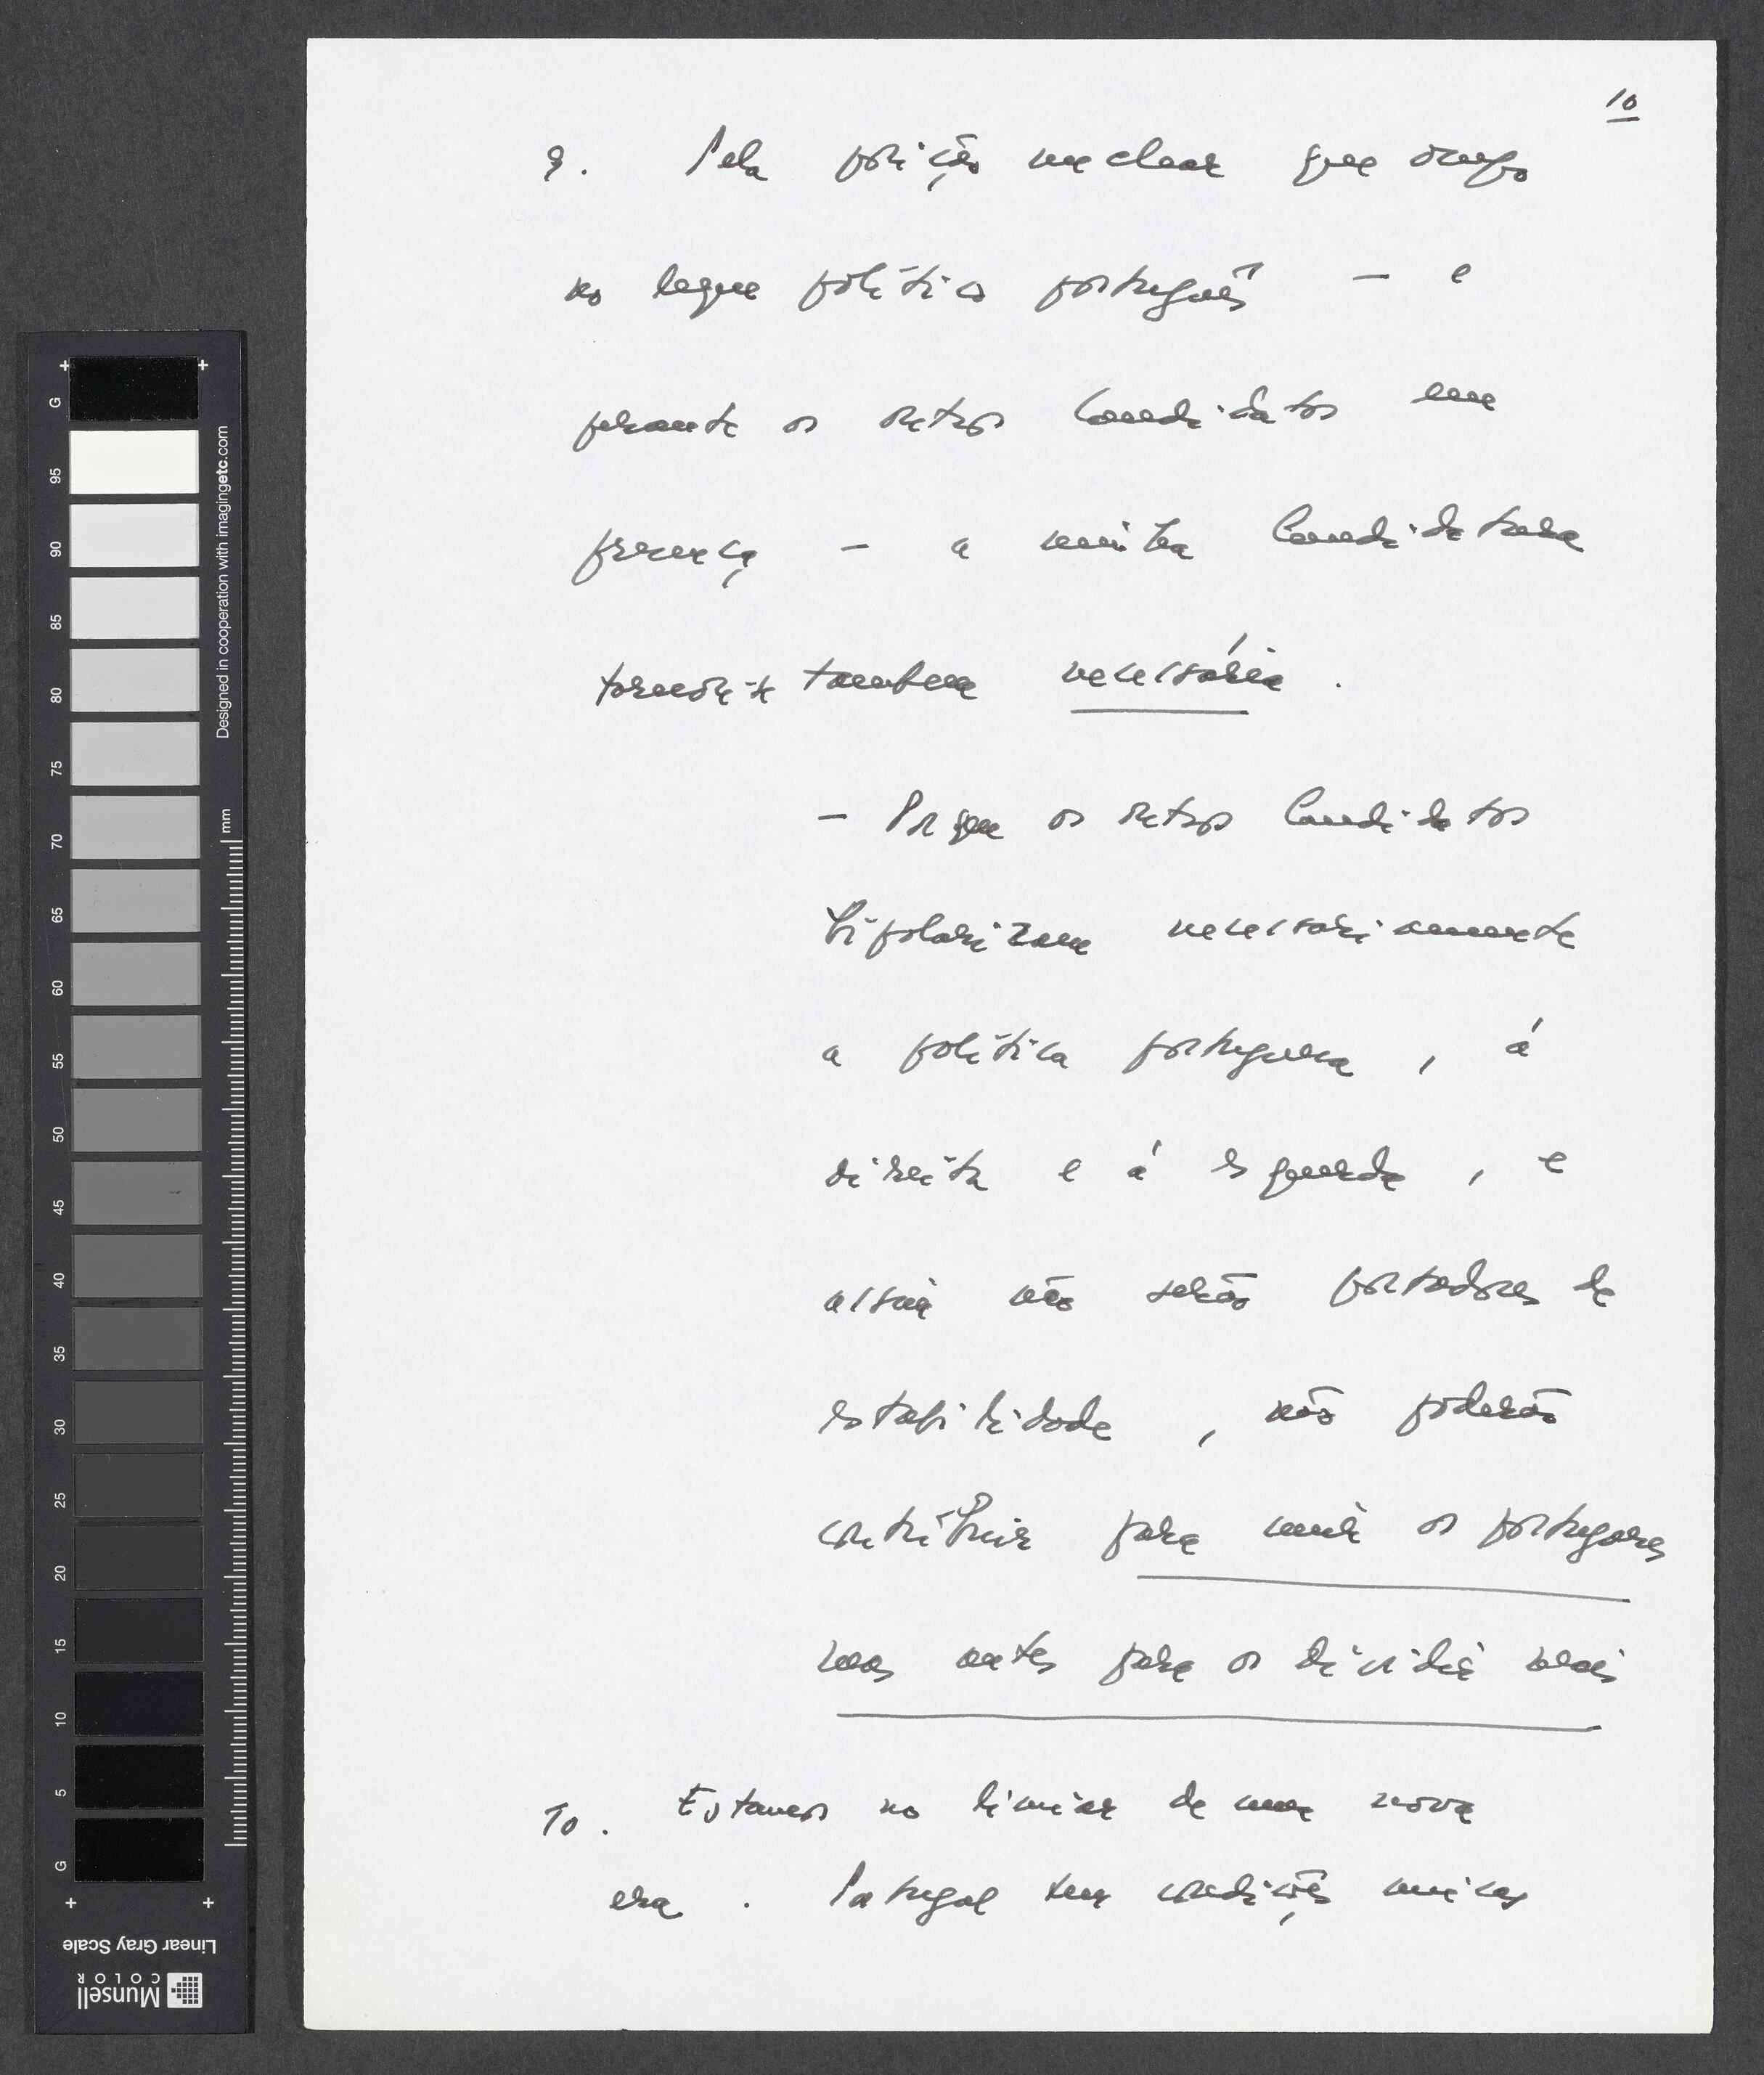 10
9. Pela posição nuclear que ocupo
no leque político português — e
perante os outros Candidatos em
presença — a minha Candidatura
tornou-se também necessária.
— Porque os outros Candidatos
bipolarizam necessariamente
a política portuguesa, á
direita e á esquerda, e
assim não serão portadores de
estabilidade, não poderão
contribuir para unir os portugueses
mas antes para os dividir mais
10. Estamos no limiar de uma nova
era. Portugal tem condições unicas
G
95
90
85
80
75
70
65
60
55
50
45
40
35
30
25
20
15
10
5
G
mm
Designed in cooperation with imagingetc.com
Linear Gray Scale
Munsell
COLOR